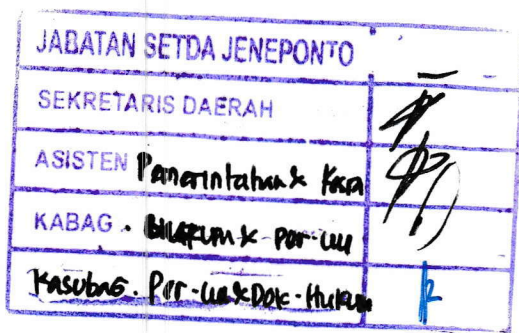 JABATAN SETDA JENEPONTO
SEKRETARIS DAERAH
ASISTEN Pemerintahan & Kesra
KABAG. Hukum & Per-uu
Kasubag. Per-uu & Dok-Hukum